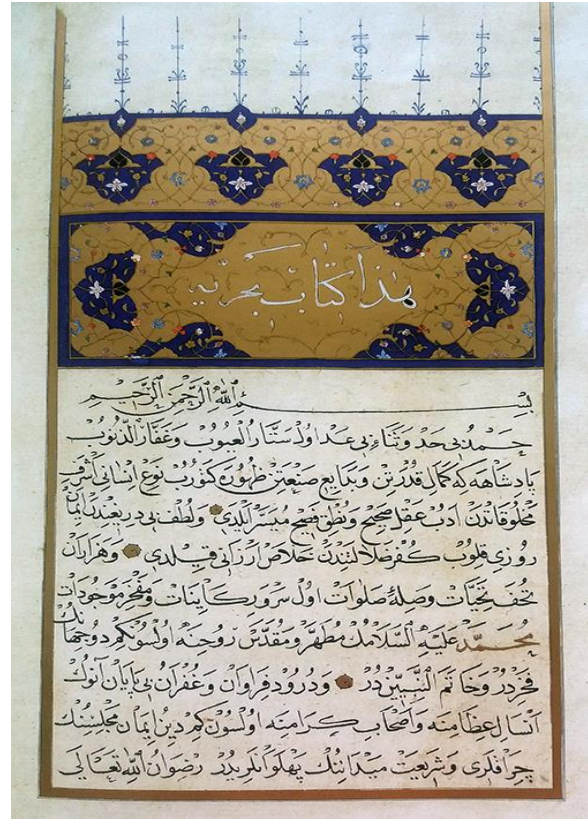 هذا كتاب بحريه
بسم الله الرحمن الرحيم
حمد بى حد و ثناء بى عد اول ستار العيوب و غفار الذنوب
پادشاهه كه كمال قدرتن و بدايع صنعتن ظهوره كتورب نوع انسانى اشرف
مخلوقاتدن ادب عقل صحيح و نطق فصيح ميسر ايلدى و لطف بى دريغندن ايمان
روزى قلوب كفر ضلالتندن خلاص ارزانى قيلدى و هزاران
تحف تحيات و صله صلوات اول سرور كاينات و مفخر موجودات
محمد عليه السلامك مطهر و مقدس روحنه اولسونكم دو جهانك
فخردر و خاتم النبييندر و درود فراوان و غفران بى پايان آنوك
آنسال عظامنه و اصحاب كرامنه اولسون كم دين ايمان مجلسنك
چراقلرى و شريعت ميداننك پهلوانلريدر رضوان الله تعالى